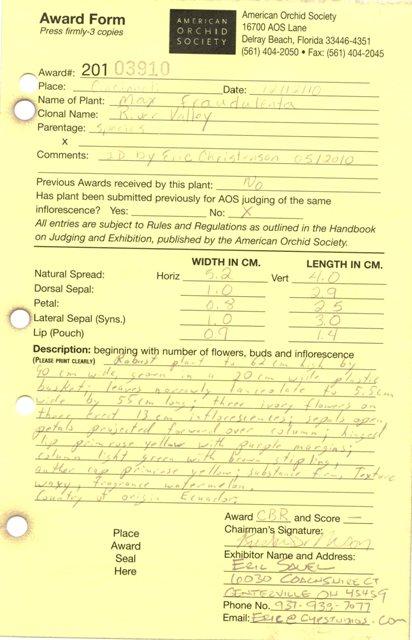 Award Form
Press firmly-3 copies
AMERICAN
ORCHID
SOCIETY
American Orchid Society
16700 AOS Lane
Delray Beach, Florida 33446-4351
(561) 404-2050 • Fax: (561) 404-2045
Award#: 201 03910
Place: Cincinnati Date:
Name of Plant: Max fraudulenta
Clonal Name: River Valley
Parentage: species
x
Comments: ID by Eric Christenson 05/2010
Previous Awards received by this plant: No
Has plant been submitted previously for AOS judging of the same
inflorescence? Yes: No: X
All entries are subject to Rules and Regulations as outlined in the Handbook
on Judging and Exhibition, published by the American Orchid Society.
WIDTH IN CM. LENGTH IN CM.
Natural Spread: Horiz 5.2 Vert 4.0
Dorsal Sepal: 1.0 2.9
Petal: 0.8 2.5
Lateral Sepal (Syns.) 1.0 3.0
Lip (Pouch) 0.9 1.4
Description: beginning with number of flowers, buds and inflorescence
(PLEASE PRINT CLEARLY) Robust plant to 62 cm high by
90 cm wide, grown in a 20 cm wide plastic
basket; leaves narrowly lanceolate to 5.5cm
wide by 55 cm long; three ivory flowers on
three erect 13 cm inflorescences; sepals open,
petals projected forward over column; hinged
lip primrose yellow with purple margins;
column light green with brown stippling,
anther cap primrose yellow; substance firm, texture
waxy, fragrance watermelon.
Country of origin Ecuador.
Place
Award
Seal
Here
Award CBR and Score —
Chairman's Signature:
Exhibitor Name and Address:
ERIC SAUER
10030 COACHSHIRE CT
CENTERVILLE OH 45459
Phone No. 937-939-7077
Email: ERIC@CYPSTUDIOS.COM